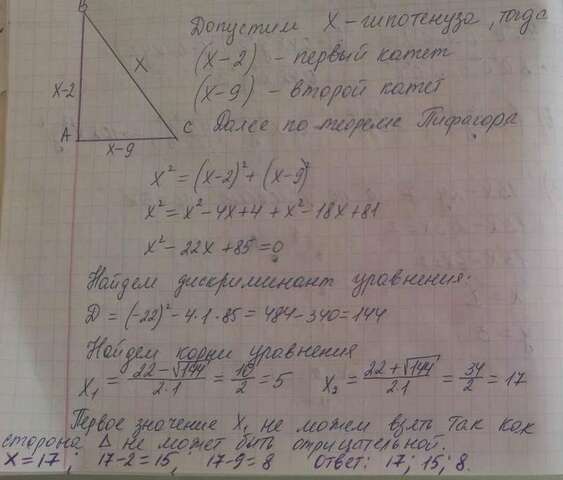 B
Допустим X - гипотенуза, тогда
(x-2) - первый катет
X
(x-9) - второй катет
x-2
A
C
Далее по теореме Пифагора
x-9
x² = (x-2)² + (x-9)²
x² = x² - 4x + 4 + x² - 18x + 81
x² - 22x + 85 = 0
Найдем дискриминант уравнения:
D = (-22)² - 4·1·85 = 484 - 340 = 144
Найдем корни уравнения
X₁ = (22 - √144)/(2·1) = 10/2 = 5 X₂ = (22 + √144)/(2·1) = 34/2 = 17
Первое значение X₁ не можем взять так как
сторона Δ не может быть отрицательной.
X = 17; 17-2=15; 17-9=8 Ответ: 17; 15; 8.